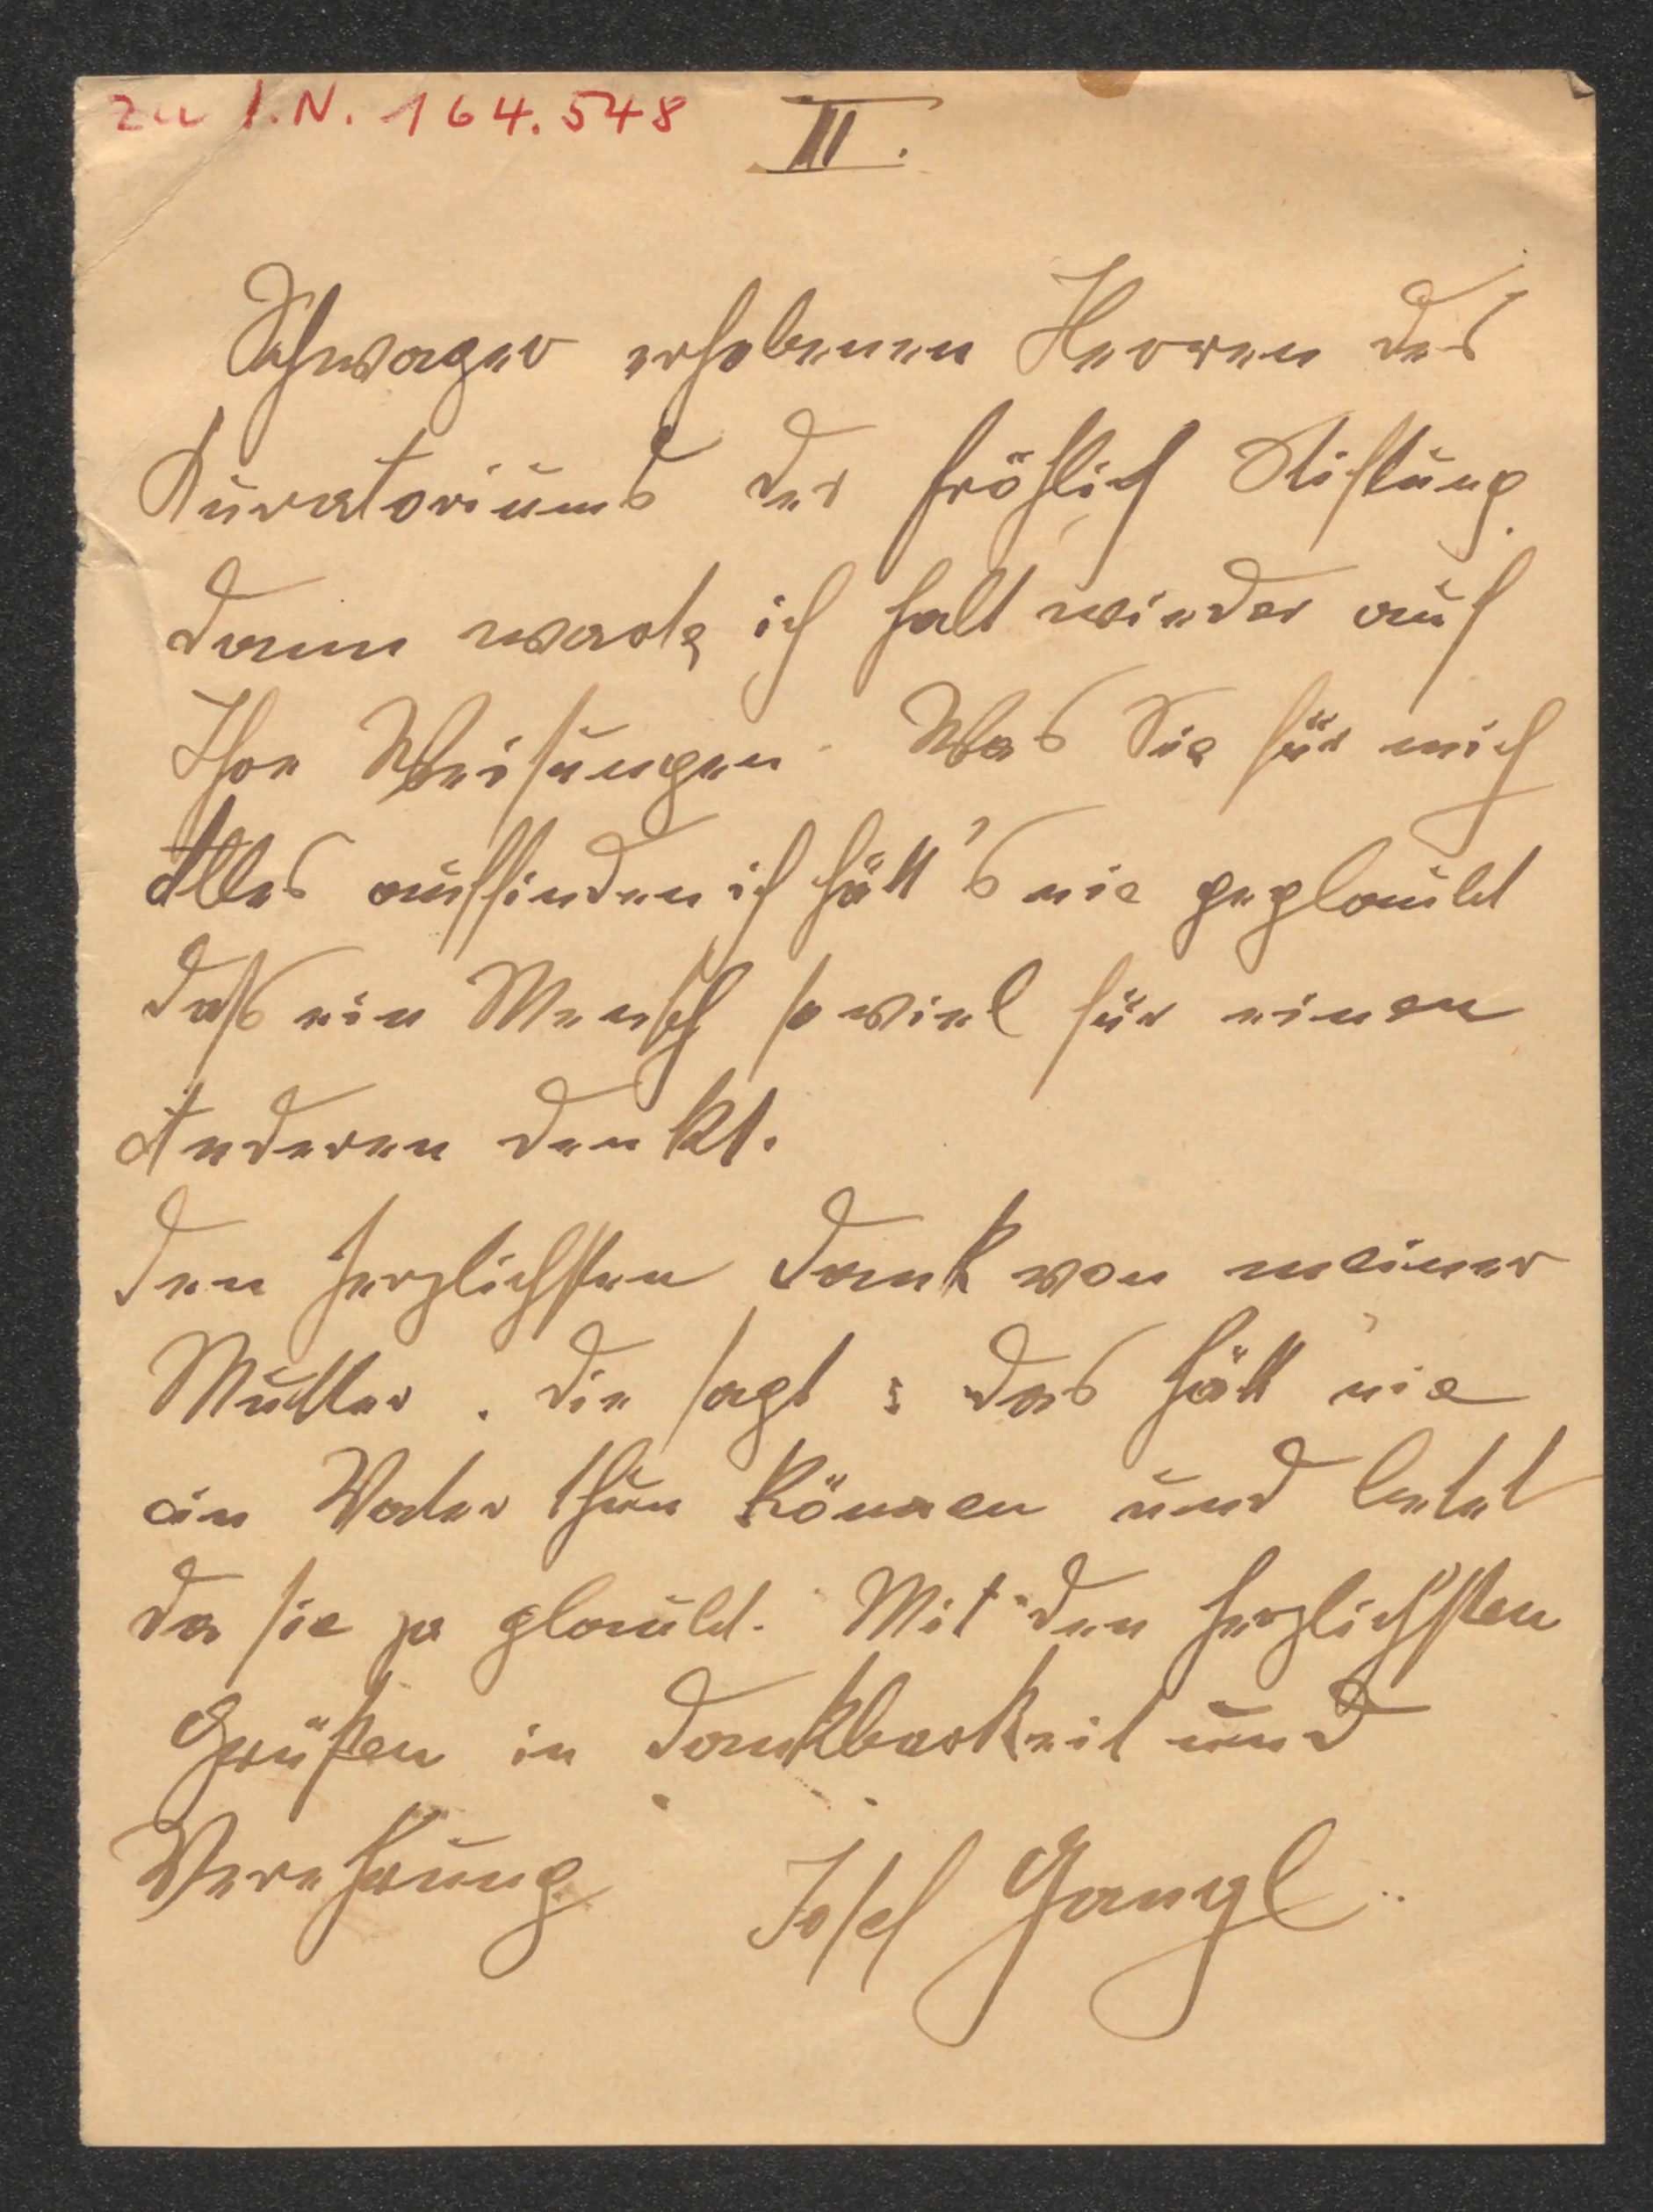 zu I.N. 164.548
II.
Schwager erhobenen Herren des
Kuratoriums der Fröhlich Stiftung.
Dann warte ich halt wieder auf
Ihre Weisungen. Was Sie für mich
Alles auffinden ich hätt's nie geglaubt
daß ein Mensch so viel für einen
Anderen denkt.
Den herzlichsten Dank von meiner
Mutter. Die sagt: das hätt nie
ein Vater thun können und betet
da sie ja glaubt. Mit den herzlichsten
Grüßen in Dankbarkeit und
Verehrung Josef Gangl